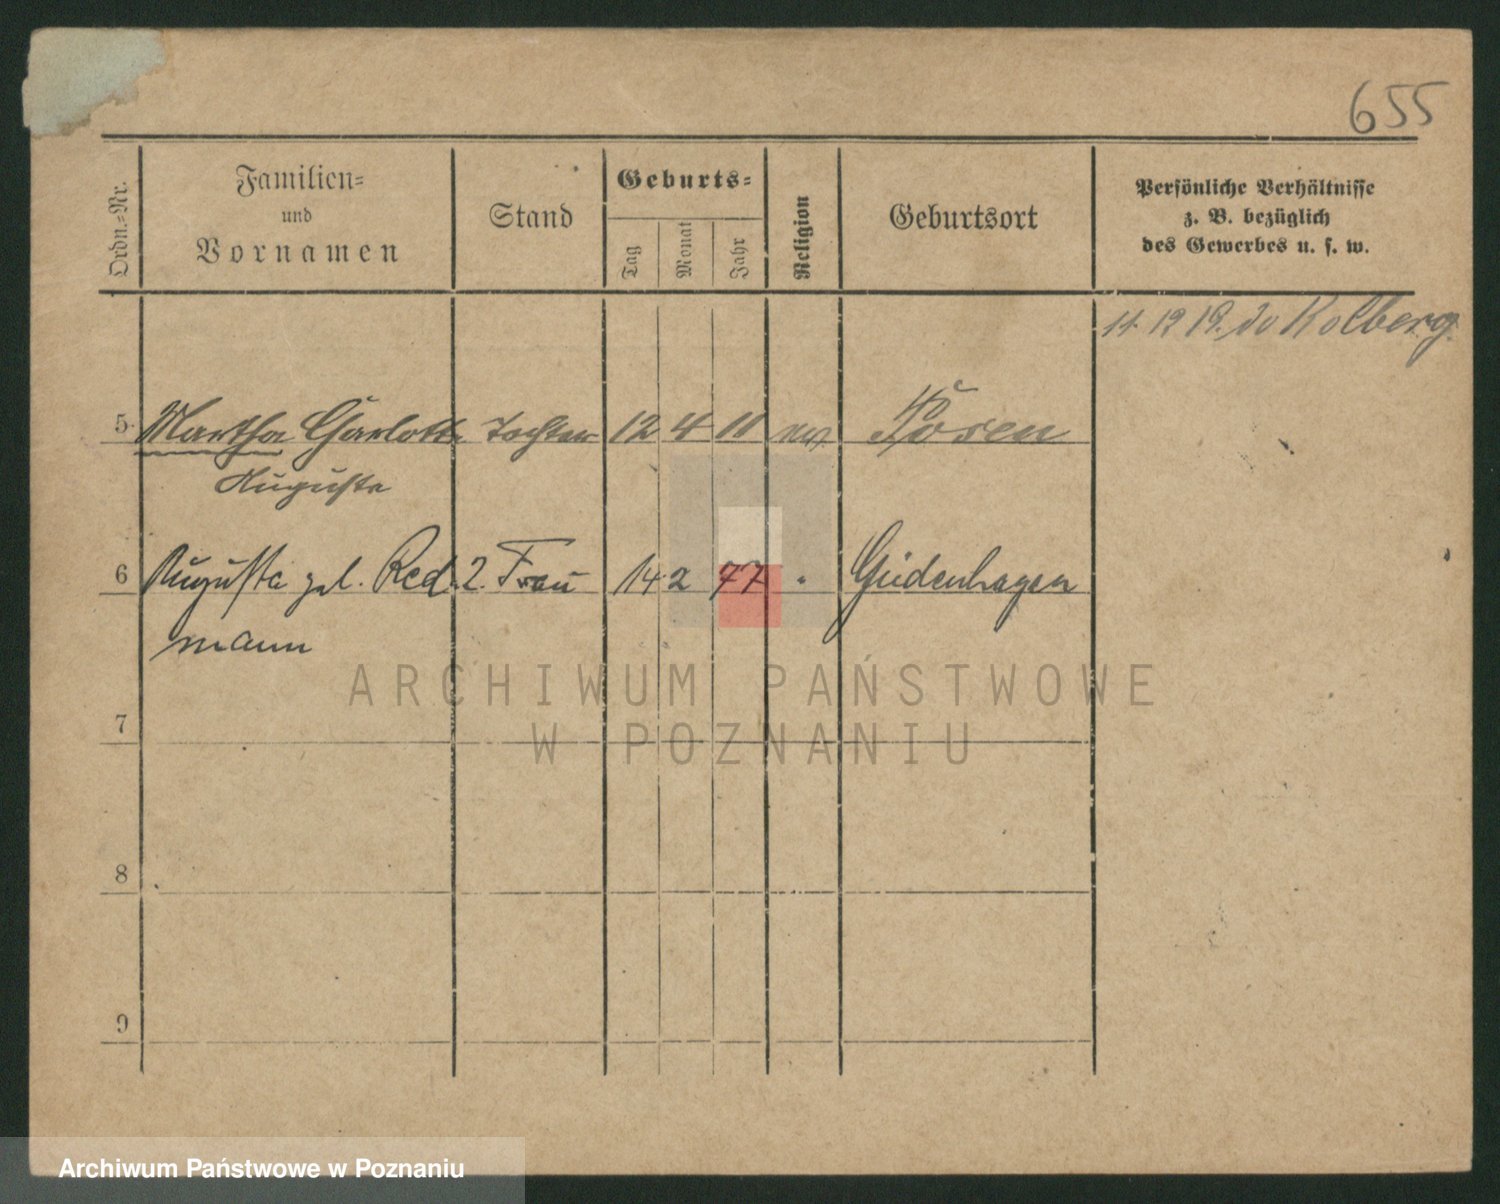 655
Ordn.=Nr.
Familien=
und
Vornamen
Stand
Geburts=
Tag
Monat
Jahr
Religion
Geburtsort
Persönliche Verhältnisse
z. B. bezüglich
des Gewerbes u. s. w.
11. 12 19. do Kolberg
5 Martha Charlotte Tochter 12 4 11 Posen
Auguste
6 Auguste geb. Red= 2. Frau 14 2 77 " Güdenhagen
mann
7
8
9
ARCHIWUM PAŃSTWOWE
W POZNANIU
Archiwum Państwowe w Poznaniu